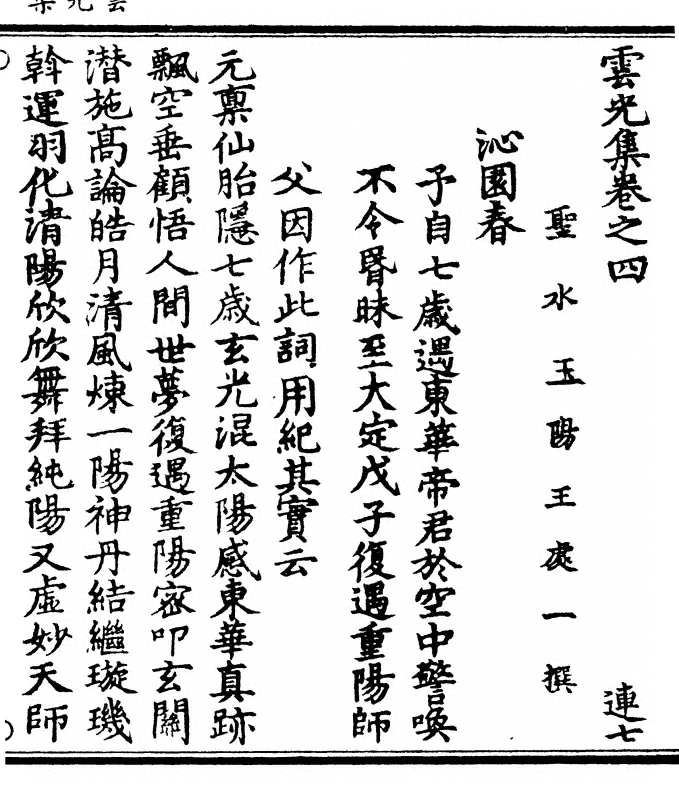 雲光集卷之四 連七
聖水玉陽王處一撰
沁園春
予自七歲遇東華帝君於空中警喚
不令昬昧至大定戊子復遇重陽師
父因作此詞用紀其實云
元禀仙胎隱七歲玄光混太陽感東華真跡
飄空垂顧悟人間世夢復遇重陽宻叩玄關
潜施髙論皓月清風煉一陽神丹結繼璇璣
斡運羽化清陽欣欣舞拜純陽又虛妙天師